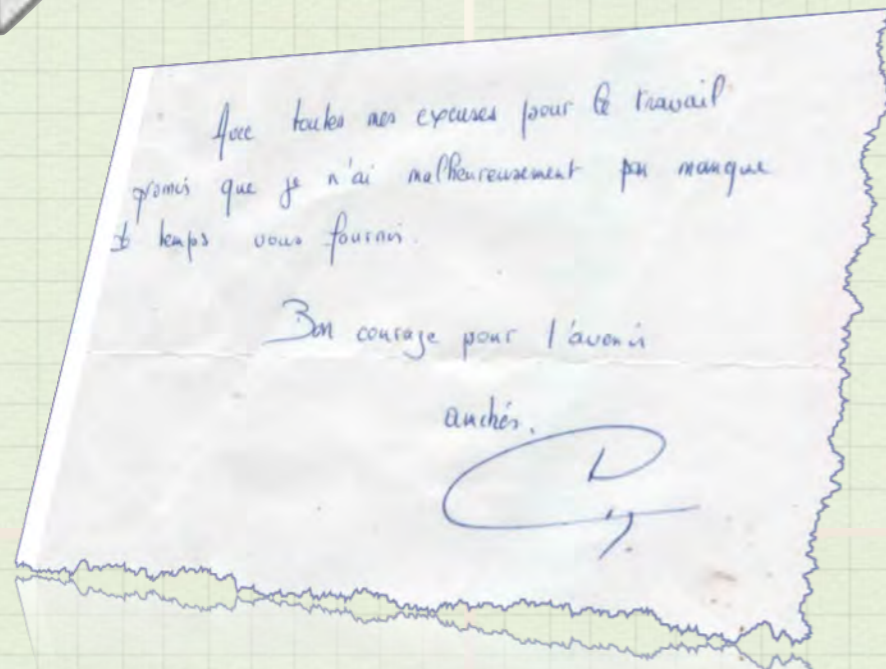 Avec toutes mes excuses pour le travail
promis que je n'ai malheureusement par manque
de temps vous fournir.
Bon courage pour l'avenir